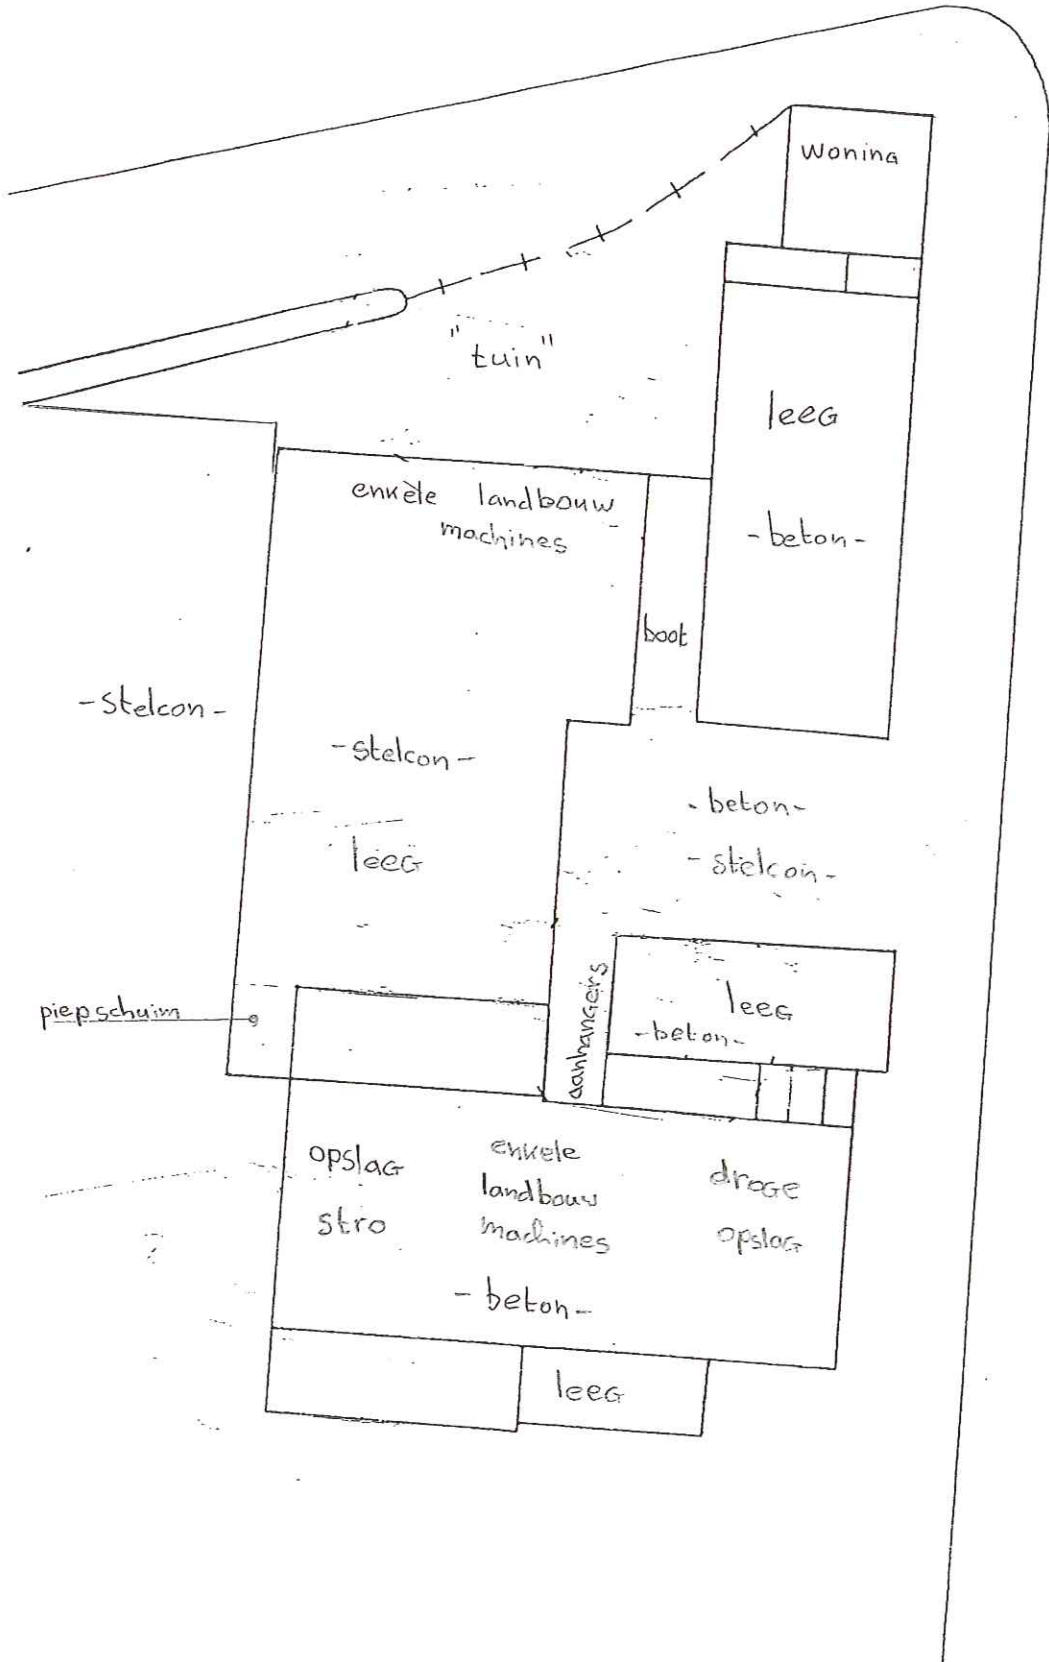 woning
"tuin"
leeg
enkele landbouw
machines
-beton-
boot
-stelcon-
-stelcon-
-beton-
-stelcon-
leeg
aanhangers
leeg
-beton-
piepschuim
opslag
stro
enkele
landbouw
machines
droge
opslag
-beton-
leeg